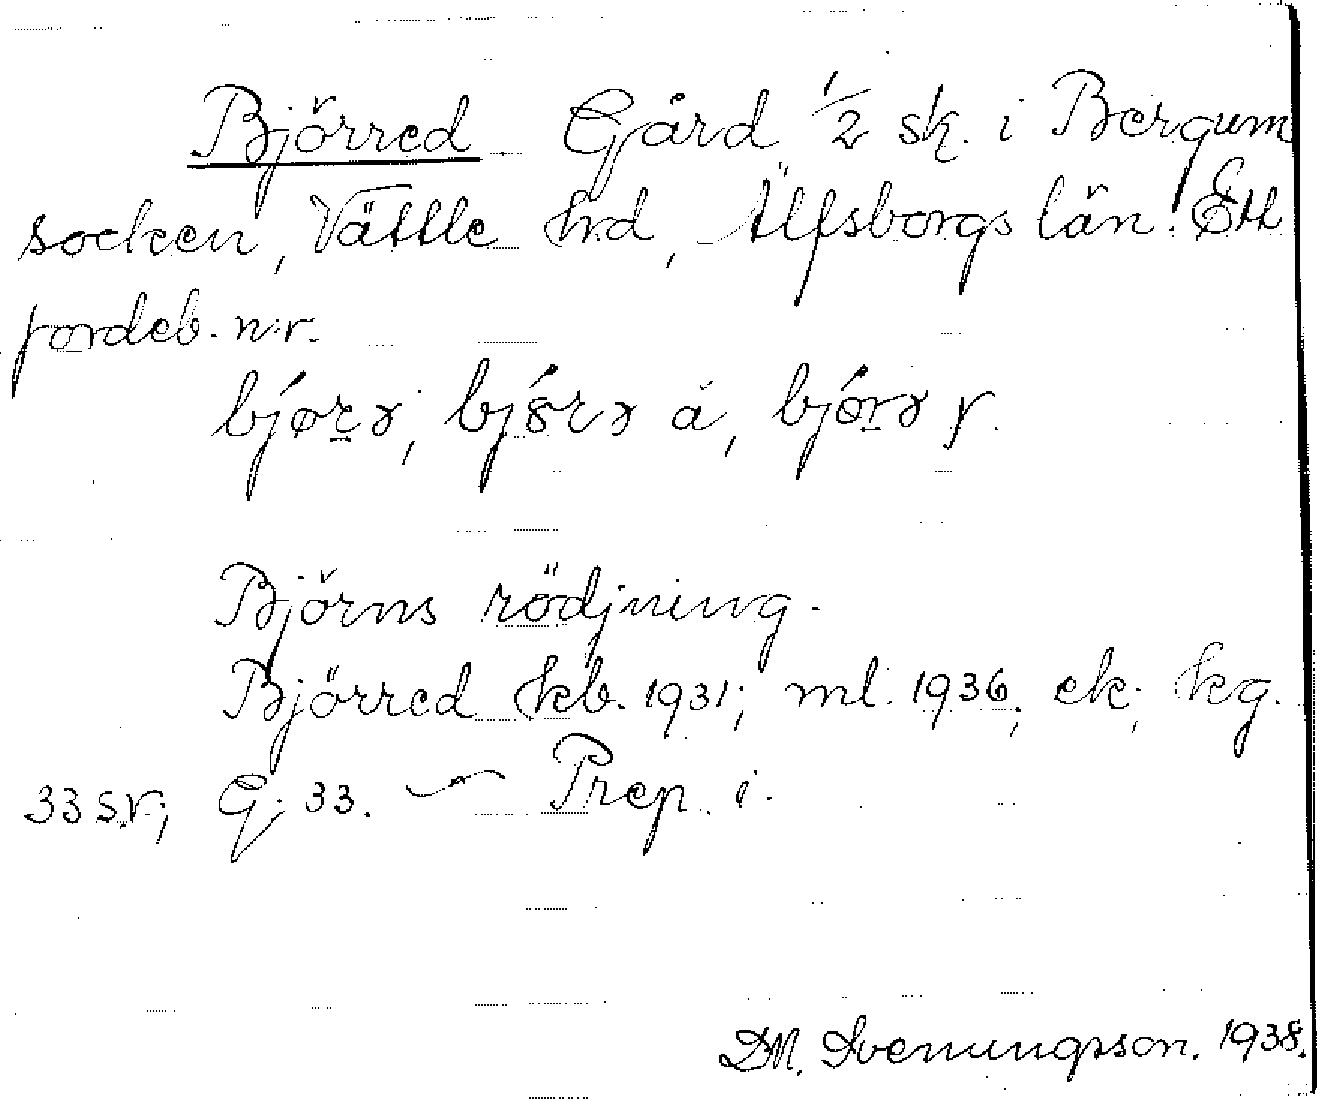 Björred Gård 1/2 sk. i Bergum
socken, Vättle hrd, Älfsborgs län. Ett
jordeb. n:r.
Björns rödjning.
Björred kb. 1931; ml. 1936; ek; kg.
33 SV; G. 33. — Prep. i.
D.M. Svenungsson. 1938.